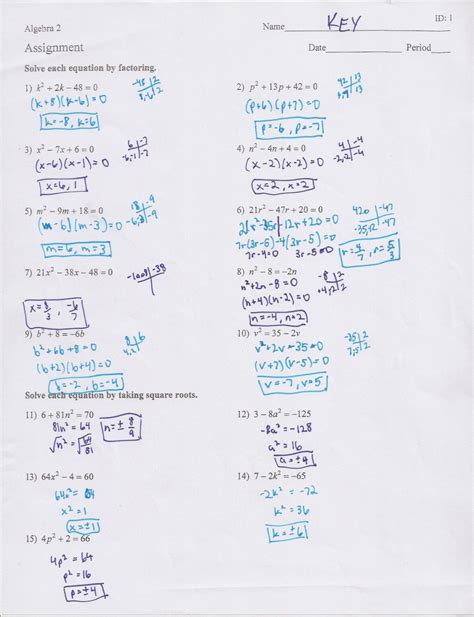 Algebra 2
Name KEY
ID: 1
Assignment
Date Period
Solve each equation by factoring.
1) k² + 2k − 48 = 0
-48 | 2
8, -6 | 2
(k+8)(k-6)=0
k=-8, k=6
2) p² + 13p + 42 = 0
42 | 13
(p+6)(p+7)=0
p=-6, p=-7
3) x² − 7x + 6 = 0
6 | -7
-6,-1 | -7
(x-6)(x-1)=0
x=6, 1
4) n² − 4n + 4 = 0
4 | -4
-2,-2 | -4
(x-2)(x-2)=0
x=2, x=2
5) m² − 9m + 18 = 0
18 | -9
-6,-3 | -9
(m-6)(m-3)=0
m=6, m=3
6) 21r² − 47r + 20 = 0
420 | -47
-35,-12 | -47
21r²-35r-12r+20=0
7r(3r-5)-4(3r-5)=0
7r-4=0 3r-5=0
r=4/7, r=5/3
7) 21x² − 38x − 48 = 0
-1008 | -38
x = 8/3, -6/7
8) n² − 8 = −2n
-8 | 2
+4,-2 | 2
n²+2n-8=0
(n+4)(n-2)=0
n=-4, n=2
9) b² + 8 = −6b
8 | 6
4,2
b²+6b+8=0
(b+2)(b+4)=0
b=-2, b=-4
10) v² = 35 − 2v
-35 | 2
7,-5 | 2
v²+2v-35=0
(v+7)(v-5)=0
v=-7, v=5
Solve each equation by taking square roots.
11) 6 + 81n² = 70
81n² = 64
√n² = √64/81
n = ± 8/9
12) 3 − 8a² = −125
-8a² = -128
a² = 16
a = ±4
13) 64x² − 4 = 60
64x² = 64
x² = 1
x = ±1
14) 7 − 2k² = −65
-2k² = -72
k² = 36
k = ±6
15) 4p² + 2 = 66
4p² = 64
p² = 16
p = ±4